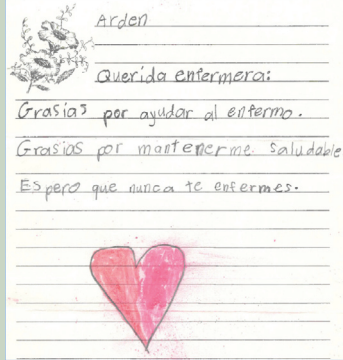 Arden
Querida enfermera:
Grasias por ayudar al enfermo.
Grasias por mantenerme saludable
Espero que nunca te enfermes.